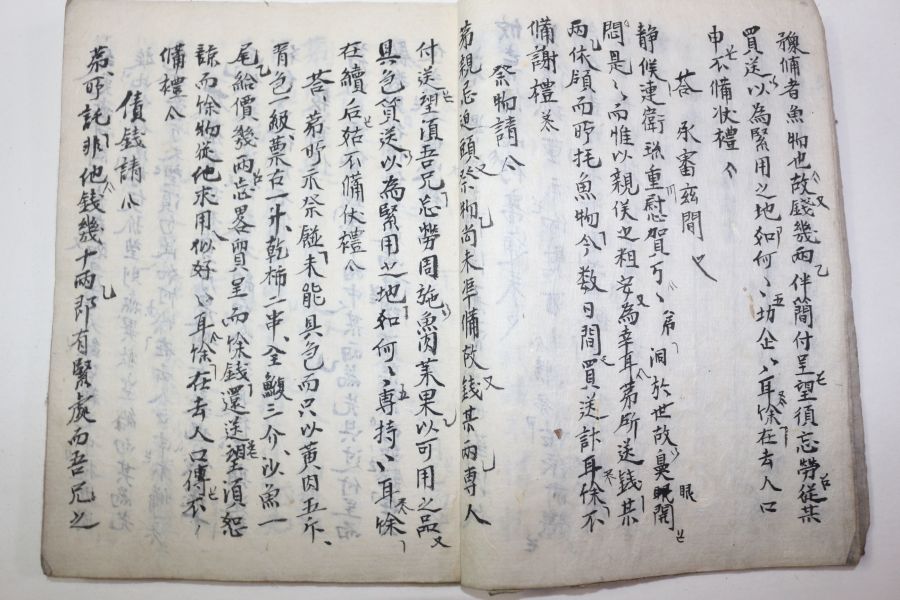 豫備者魚物也故錢幾兩伴簡付呈望須忘勞從某
買送以為緊用之地如何〻切企〻耳餘在去人口
申不備狀禮
答 承審玆間
靜候連衛珎重慰賀万〻弟洞於世故鼻眼開
悶是〻而惟以親候之粗安為幸耳第所送錢某
兩依領而所托魚物今数日間買送計耳餘不
備謝禮
祭物請
弟親忌迫頭祭物尚未準備故錢某兩專人
付送望須吾兄忘勞周施魚肉菓果以可用之品
具色貿送以為緊用之地如何〻專持〻耳餘
在續后姑不備伏禮
答 弟所示祭饌未能具色而只以黄肉五斤
胥色一級票古一斗乾柿二串全鰒三介沙魚一
尾給價幾兩忘畧貿呈而餘錢還送望須恕
諒而餘物從他求用似好〻耳餘在去人口傳不
備禮
債錢請
第所託非他錢幾十兩即有緊處而吾兄之